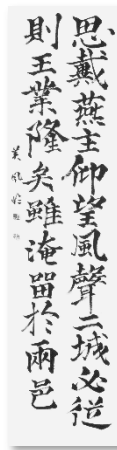 思戴燕主仰望風聲二城必從
則王業隆矣雖淹留於兩邑